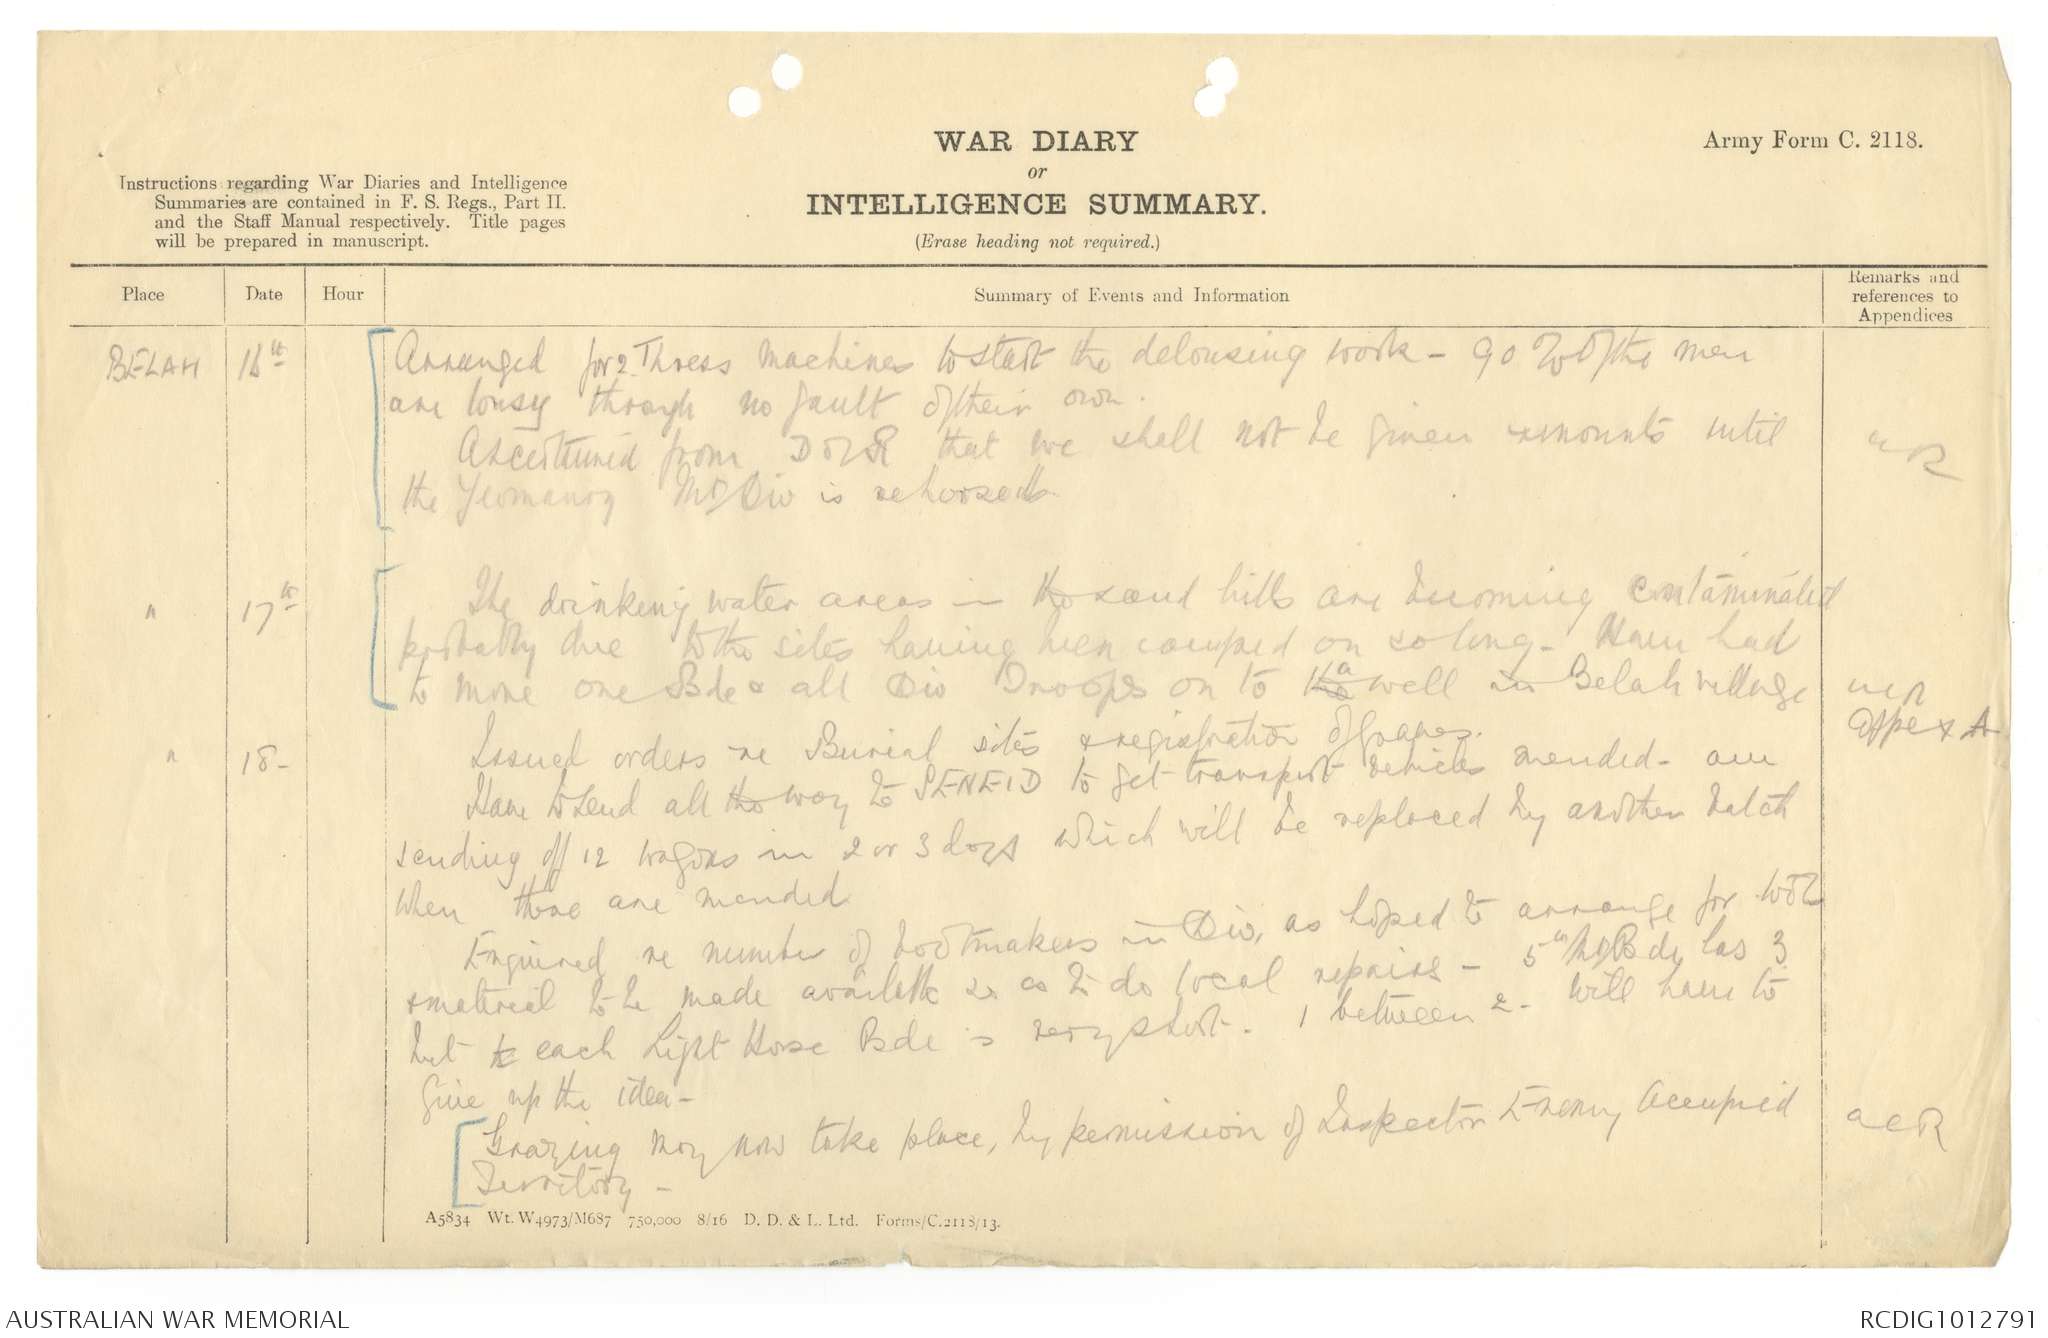 WAR DIARY
or
INTELLIGENCE SUMMARY.
(Erase heading not required.)
Army Form C. 2118.
Instructions regarding War Diaries and Intelligence
Summaries are contained in F. S. Regs., Part II.
and the Staff Manual respectively. Title pages
will be prepared in manuscript.
Place
Date
Hour
Summary of Events and Information
Remarks and
references to
Appendices
BELAH 16th Arranged for 2 Thress machines to start the delousing work - 90 % of the men
are lousy through no fault of their own.
Ascertained from D of R that we shall not be given remounts until
the Yeomanry Mtd Div is rehorsed.
" 17th The drinking water areas in the sand hills are becoming contaminated
probably due to the sites having been camped on so long - Have had
to move one Bde & all Div Troops on to a well in Belah village
Appex A
" 18 - Issued orders re Burial sites & registration of graves.
Have to send all the way to SENEID to get transport vehicles mended - am
sending off 12 wagons in 2 or 3 days which will be replaced by another batch
when these are mended
Enquired re number of bootmakers in Div, as hoped to arrange for
& material to be made available so as to do local repairs - 5th Mtd Bde has 3
but each Light Horse Bde is very short. 1 between 2 - Will have to
give up the idea -
Grazing may now take place, by permission of Inspector Enemy Occupied
Territory -
ACR
A5834 Wt. W4973/M687 750,000 8/16 D. D. & L. Ltd. Forms/C.2118/13.
AUSTRALIAN WAR MEMORIAL
RCDIG1012791